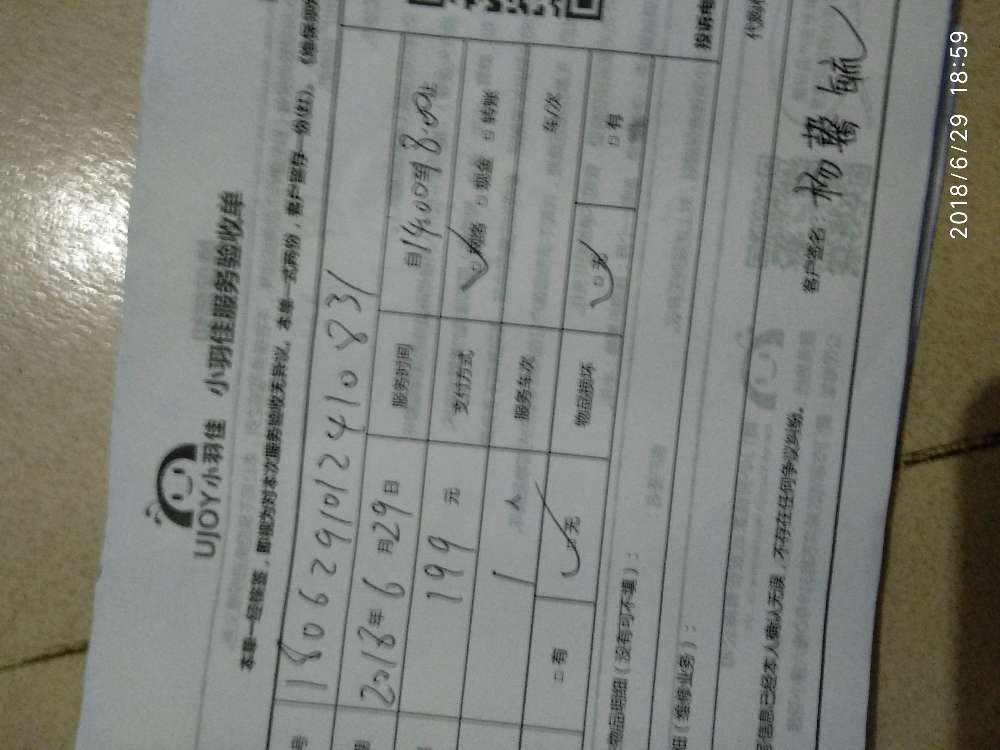 UJOY小羽佳 小羽佳服务验收单
本单一经核签，即视为对本次服务验收无异议。本单一式两份，客户留存一份(红)。
号 180629101241083
期 2018年6月29日 服务时间 自14:00到18:00止
199 元 支付方式 网络 现金 转账
1 人 服务车次 车/次
有 无 物品损坏 无 有
物品明细（没有可不填）：
细（维修业务）：
投诉电
代购
信息已经本人确认无误，不存在任何争议纠纷。 客户签名：杨馨毓
2018/6/29 18:59